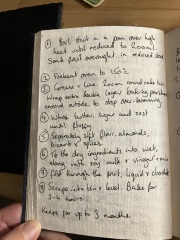 ① Boil stout in a pan over high
heat until reduced to 200ml.
Soak fruit overnight in reduced stout
② Preheat oven to 150°C
③ Grease + line 20cm round cake tin
Wrap extra double layer baking parchment
around outside to stop over-browning
④ Whisk butter, sugar and zest
until fluffy.
⑤ Separately sift flour, almonds,
bicarb + spices
⑥ Tip dry ingredients into wet,
along with soy milk + vinegar mix
⑦ Fold through the fruit, liquid + 
⑧ Scrape into tin + level. Bake for
3-4 hours
Keeps for up to 3 months.